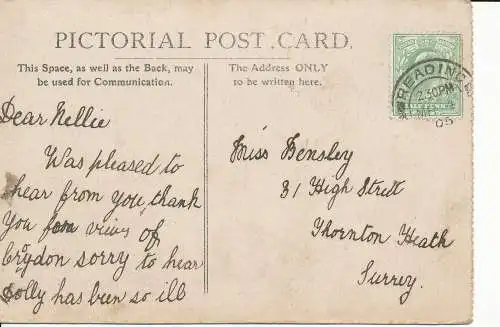 PICTORIAL POST CARD.
This Space, as well as the Back, may
be used for Communication.
The Address ONLY
to be written here.
READING
2.30 PM
05
Dear Nellie
Was pleased to
hear from you, thank
You for views of
Croydon sorry to hear
Dolly has been so ill
Miss Hensley
31 High Strett
Thornton Heath
Surrey.